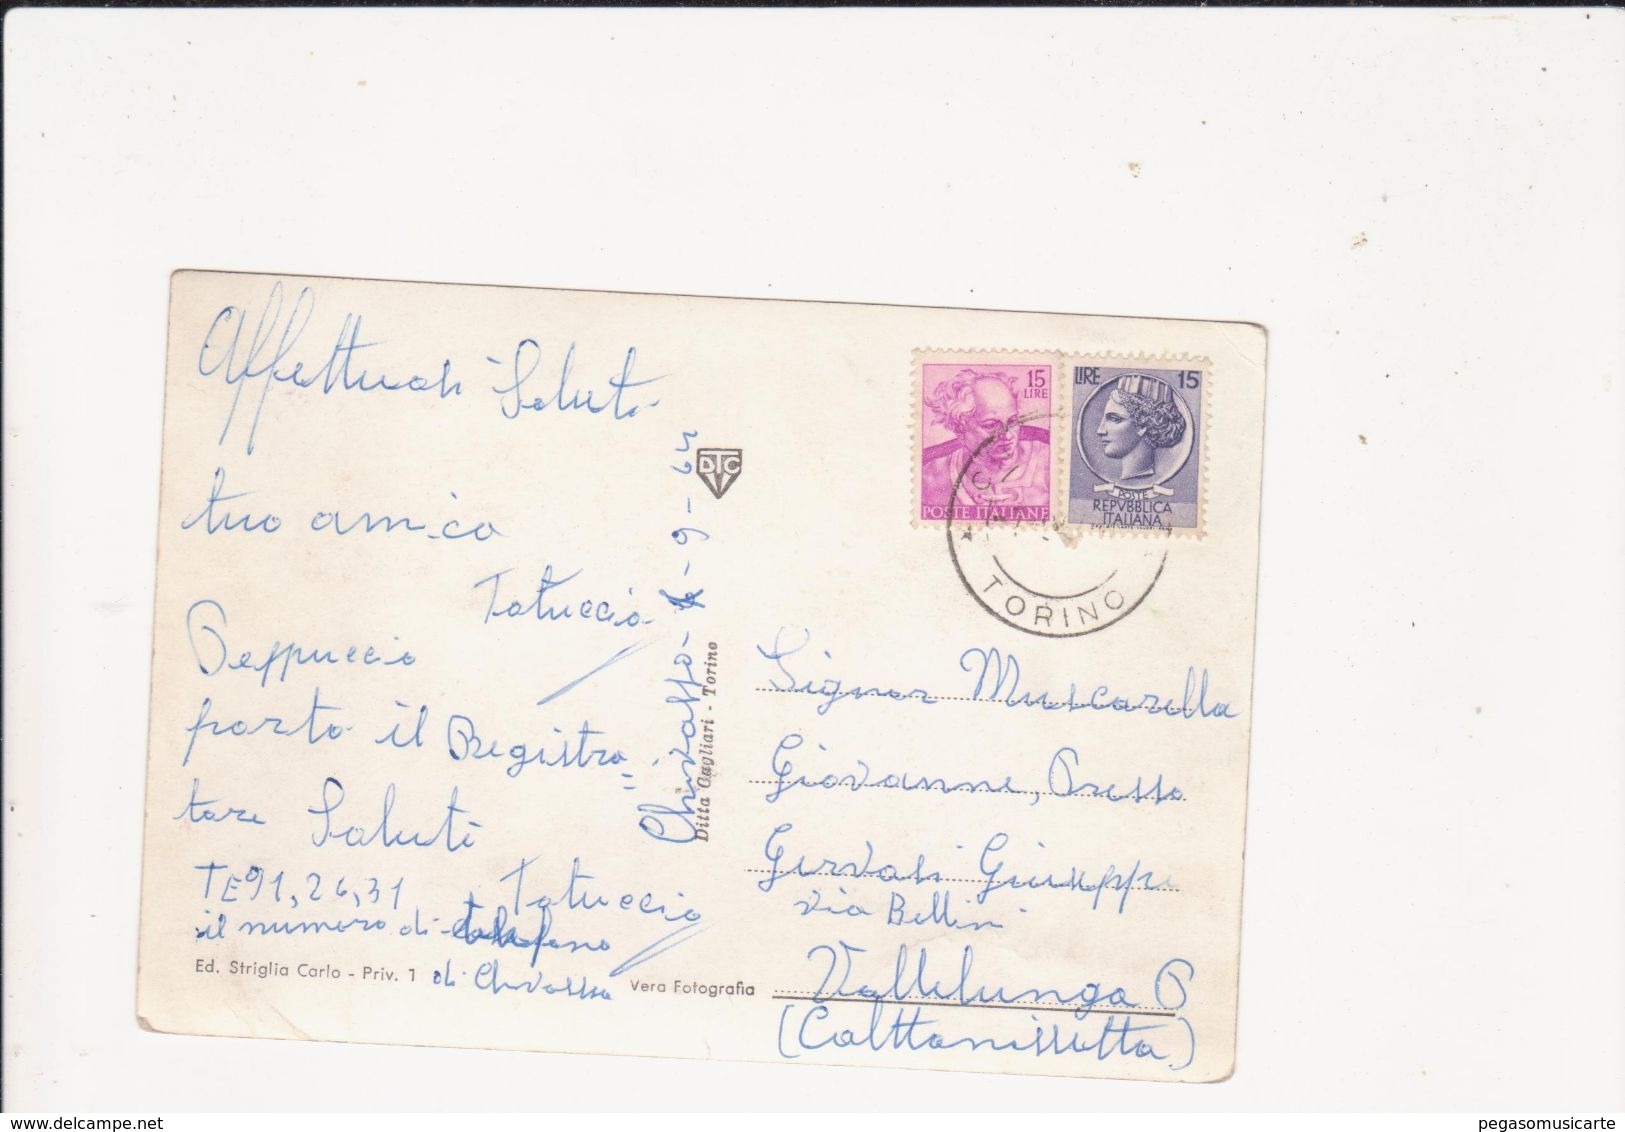 Affettuosi Saluti
tuo amico
Totuccio
Peppuccio
porto il Registra=
tore Saluti
Totuccio
TE91,26,31
il numero di telefono
di Chivasso
Ed. Striglia Carlo - Priv. 1
Vera Fotografia
Chivasso - 6-9-64
DTC
Ditta Cagliari - Torino
15
LIRE
POSTE ITALIANE
LIRE 15
POSTE
REPVBBLICA
ITALIANA
TORINO
Signor Muscarella
Giovanne, Presso
Gervasi Giuseppe
via Bellini
Vallelunga P
(Calttanissetta)
pegasomusicarte
delcampe.net